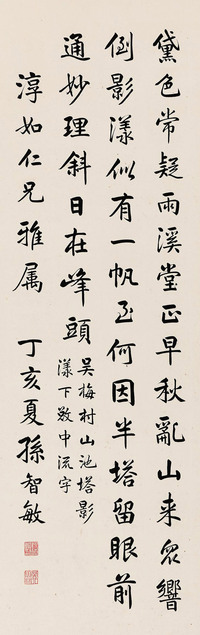 黛色常疑雨溪堂正早秋亂山来眾響
倒影漾似有一帆至何因半塔留眼前
通妙理斜日在峰頭
吴梅村山池塔影
漾下敚中流字
淳如仁兄雅属
丁亥夏孫智敏